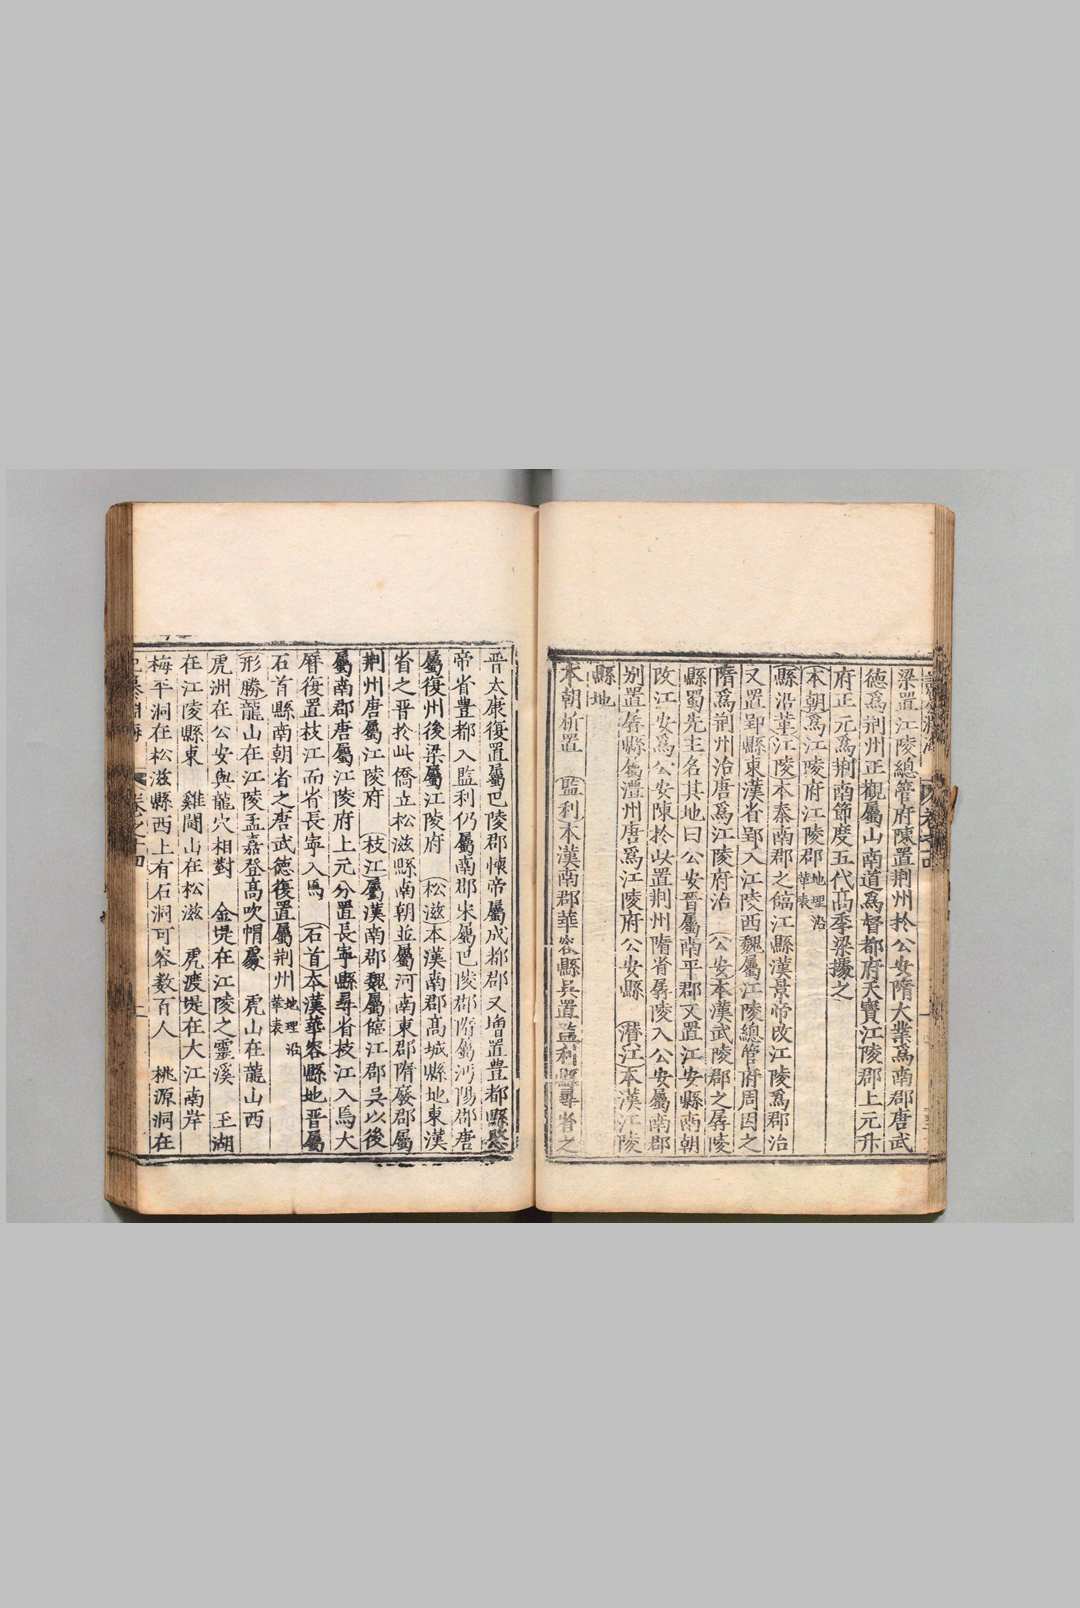 梁置江陵總管府陳置荆州於公安隋大業爲南郡唐武
德爲荆州正觀屬山南道爲督都府天寶江陵郡上元升
府正元爲荆南節度五代高季梁據之
本朝爲江陵府江陵郡地理沿革表
縣沿革江陵本秦南郡之臨江縣漢景帝改江陵爲郡治
又置郢縣東漢省郢入江陵西魏屬江陵總管府周因之
隋爲荆州治唐爲江陵府治 公安本漢武陵郡之孱陵
縣蜀先主名其地曰公安晉屬南平郡又置江安縣南朝
改江安爲公安陳於此置荆州隋省孱陵入公安屬南郡
别置孱縣屬澧州唐爲江陵府公安縣 潛江本漢江陵
縣地
本朝析置 監利本漢南郡華容縣吳置監利縣尋省之
晉太康復置屬巴陵郡懷帝屬成都郡又增置豊都縣愍
帝省豊都入監利仍屬南郡宋屬巴陵郡隋屬沔陽郡唐
屬復州後梁屬江陵府 松滋本漢南郡高城縣地東漢
省之晉於此僑立松滋縣南朝並屬河南東郡隋廢郡屬
荆州唐屬江陵府 枝江屬漢南郡魏屬臨江郡吳以後
屬南郡唐屬江陵府上元分置長寧縣尋省枝江入焉大
曆復置枝江而省長寧入焉 石首本漢華容縣地晉屬
石首縣南朝省之唐武德復置屬荆州地理沿革表
形勝龍山在江陵孟嘉登高吹帽處 虎山在龍山西
虎洲在公安與龍穴相對 金堤在江陵之靈溪 玉湖
在江陵縣東 雞閭山在松滋 虎渡堤在大江南岸
梅平洞在松滋縣西上有石洞可容數百人 桃源洞在
卷之十四